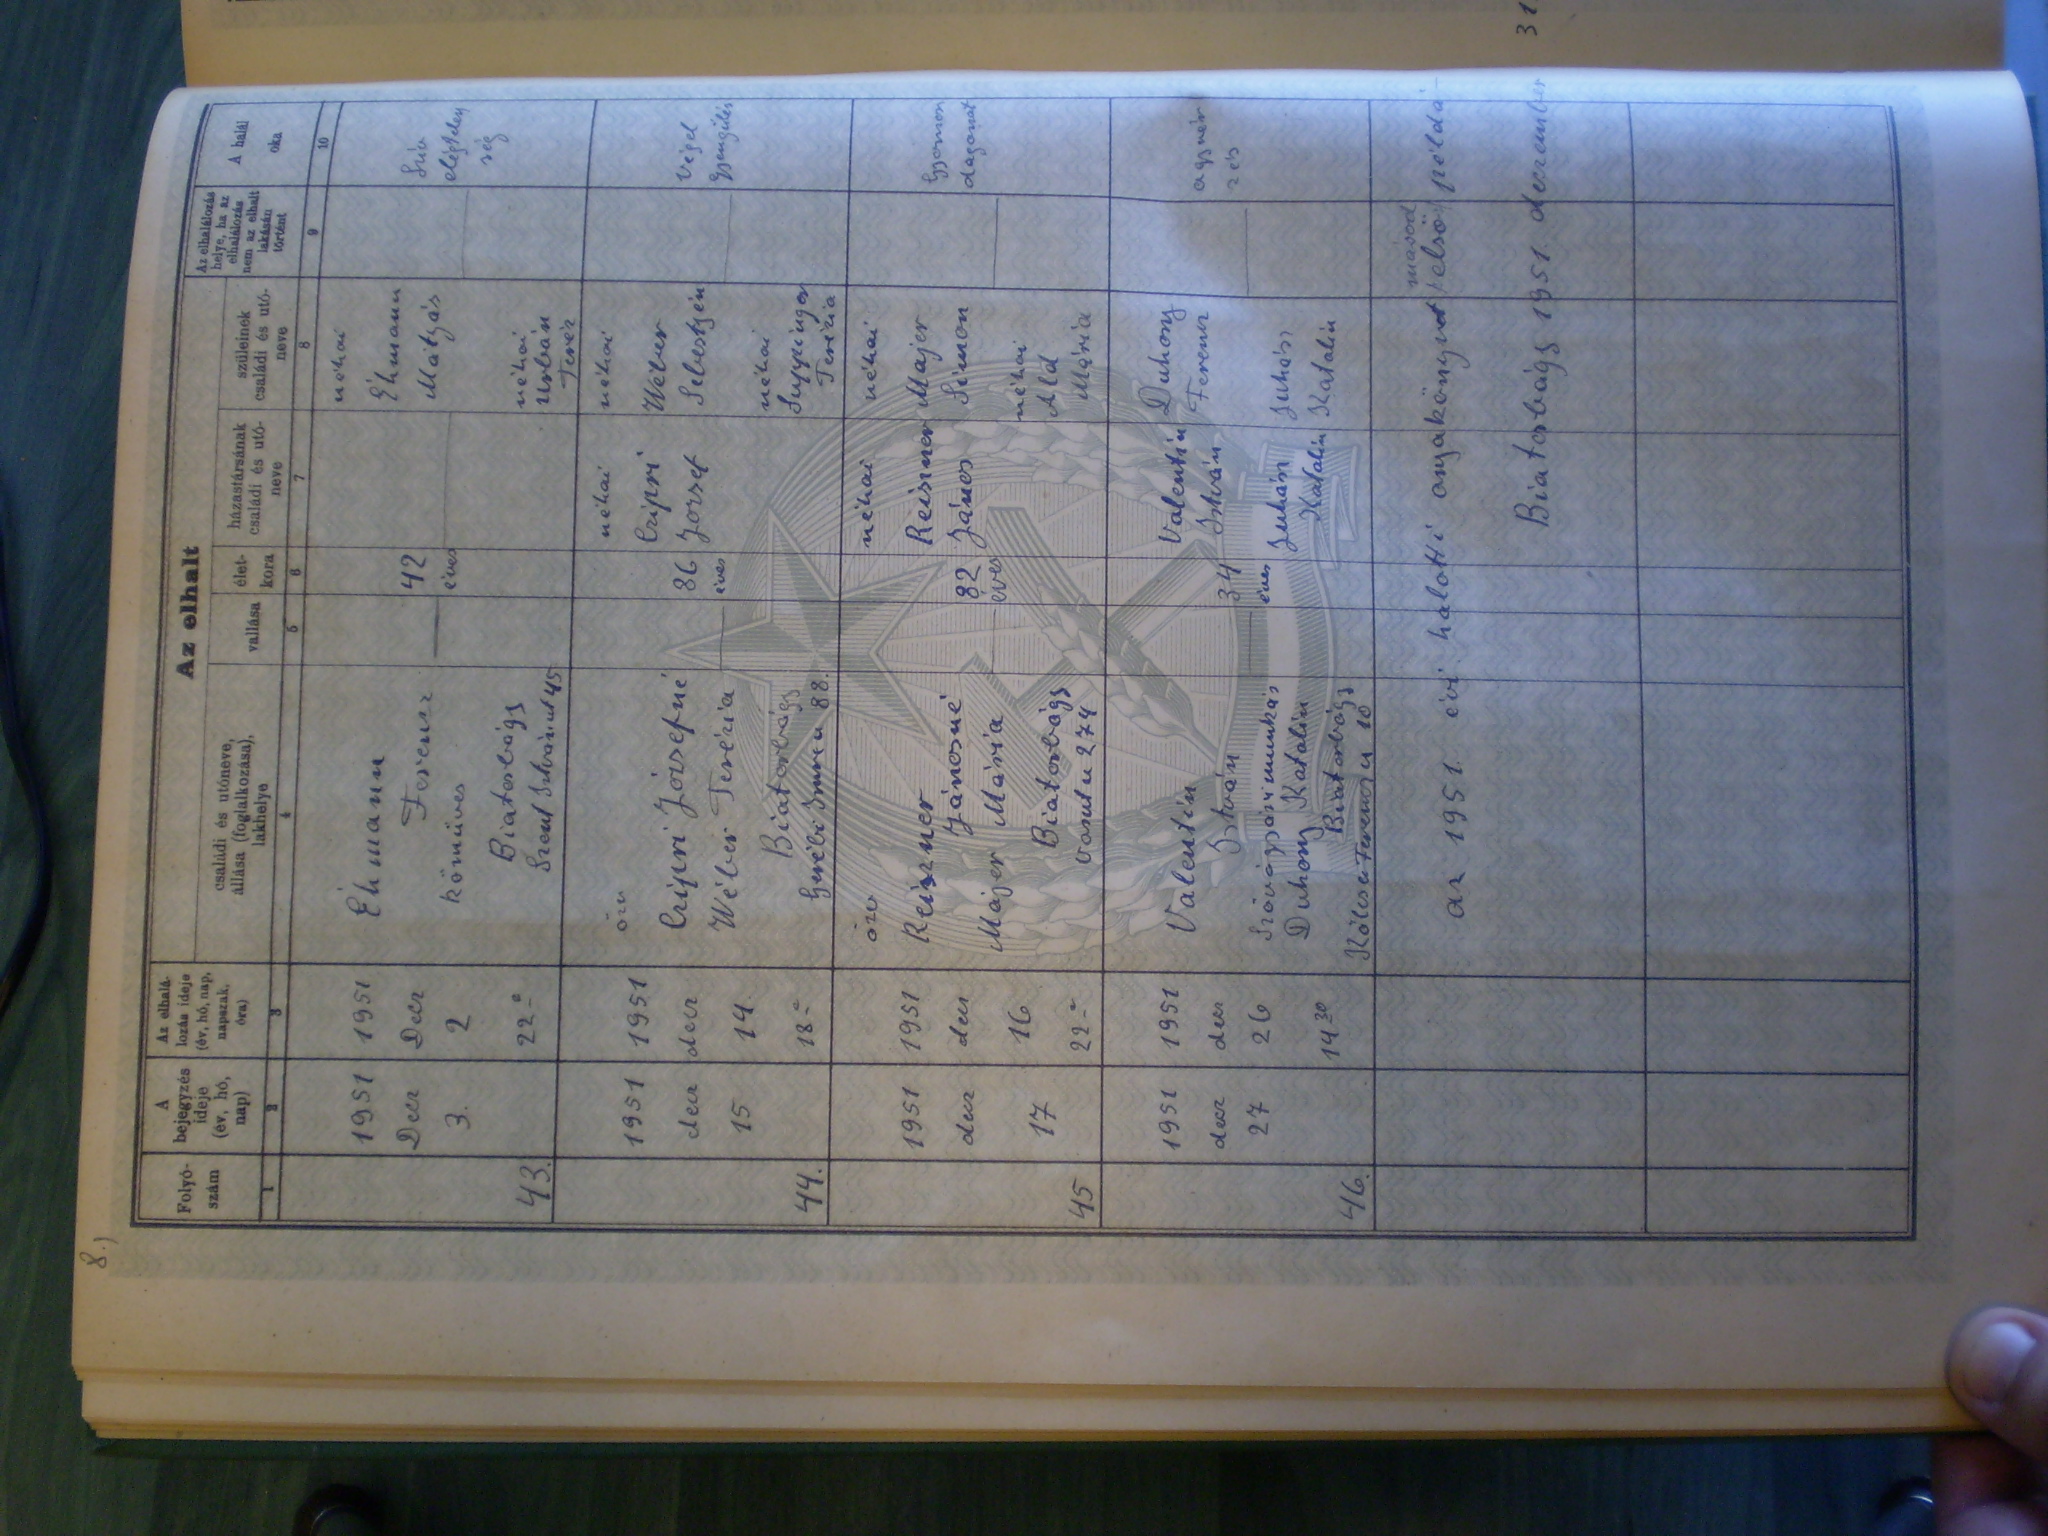 8.)
Az elhalt
Folyó-
szám
A
bejegyzés
ideje
(év, hó,
nap)
Az elhalá-
lozás ideje
(év, hó, nap,
napszak,
óra)
családi és utóneve,
állása (foglalkozása),
lakhelye
vallása
élet-
kora
házastársának
családi és utó-
neve
szüleinek
családi és utó-
neve
Az elhalálozás
helye, ha az
elhalálozás
nem az elhalt
lakásán
történt
A halál
oka
1
2
3
4
5
6
7
8
9
10
43.
1951
Decz
3.
1951
Decz
2
22-
Éhmann
Ferencz
kőműves
Biatorbágy
Szent István ut 45
42
éves
néhai
Éhmann
Mátyás
néhai
Urbán
Teréz
Szív
elégtelen
ség
44.
1951
decz
15
1951
decz
14.
18-
özv
Czipri Józsefné
Wéber Terézia
Biatorbágy
Imre u 88.
86
éves
néhai
Czipri
József
néhai
Wéber
Sebestyén
néhai
Terézia
végel
gyengülés
45
1951
decz
17
1951
decz
16
22-
özv
Reiszner
Jánosné
Majer Mária
Biatorbágy
Vasut u 274
82
éves
néhai
Reisner
János
néhai
Majer
Simon
néhai
Ald
Mária
Gyomor
daganat
46.
1951
decz
27
1951
decz
26
14 30
Valentin
István
Szövőgyárimunkás
Duhony Katalin
Biatorbágy
Kölcsei Ferencz u 10
34
éves
Valentin
István
Juhász
Katalin
Duhony
Ferencz
Juhász
Katalin
agyvér
zés
másod
az 1951. évi halotti anyakönyvet /első/ példá-
Biatorbágy 1951. december
31